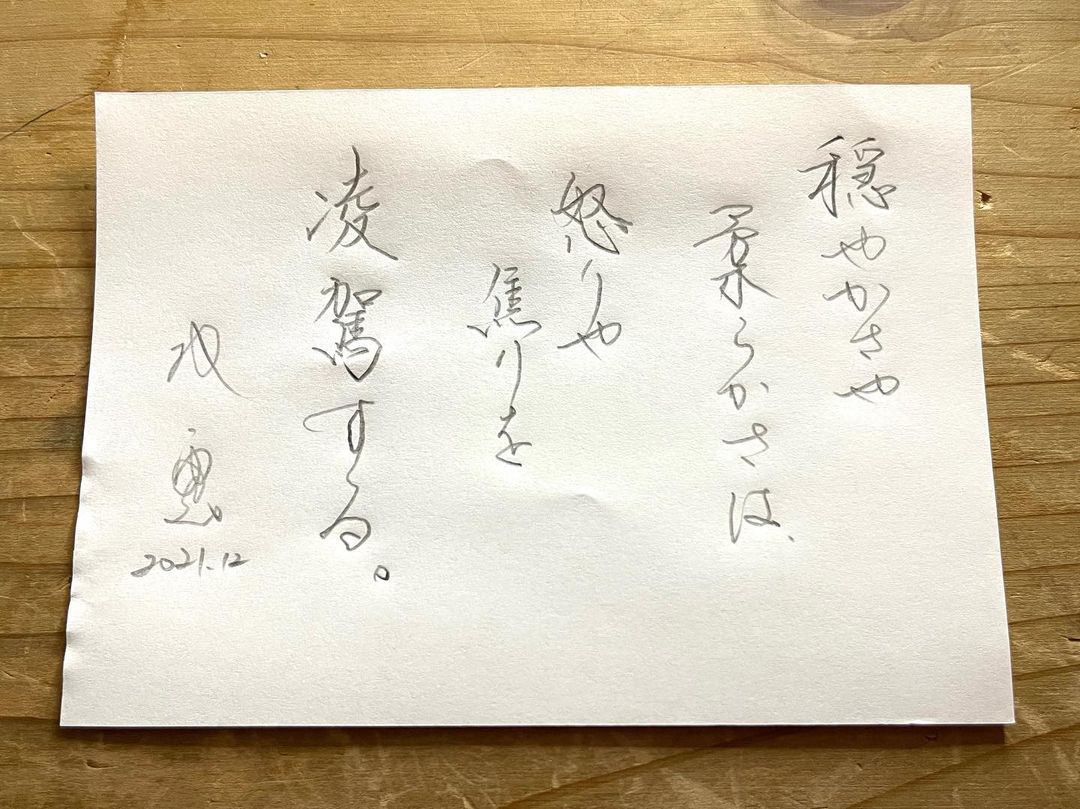 穏やかさや
柔らかさは、
怒りや
焦りを
凌駕する。
2021.12